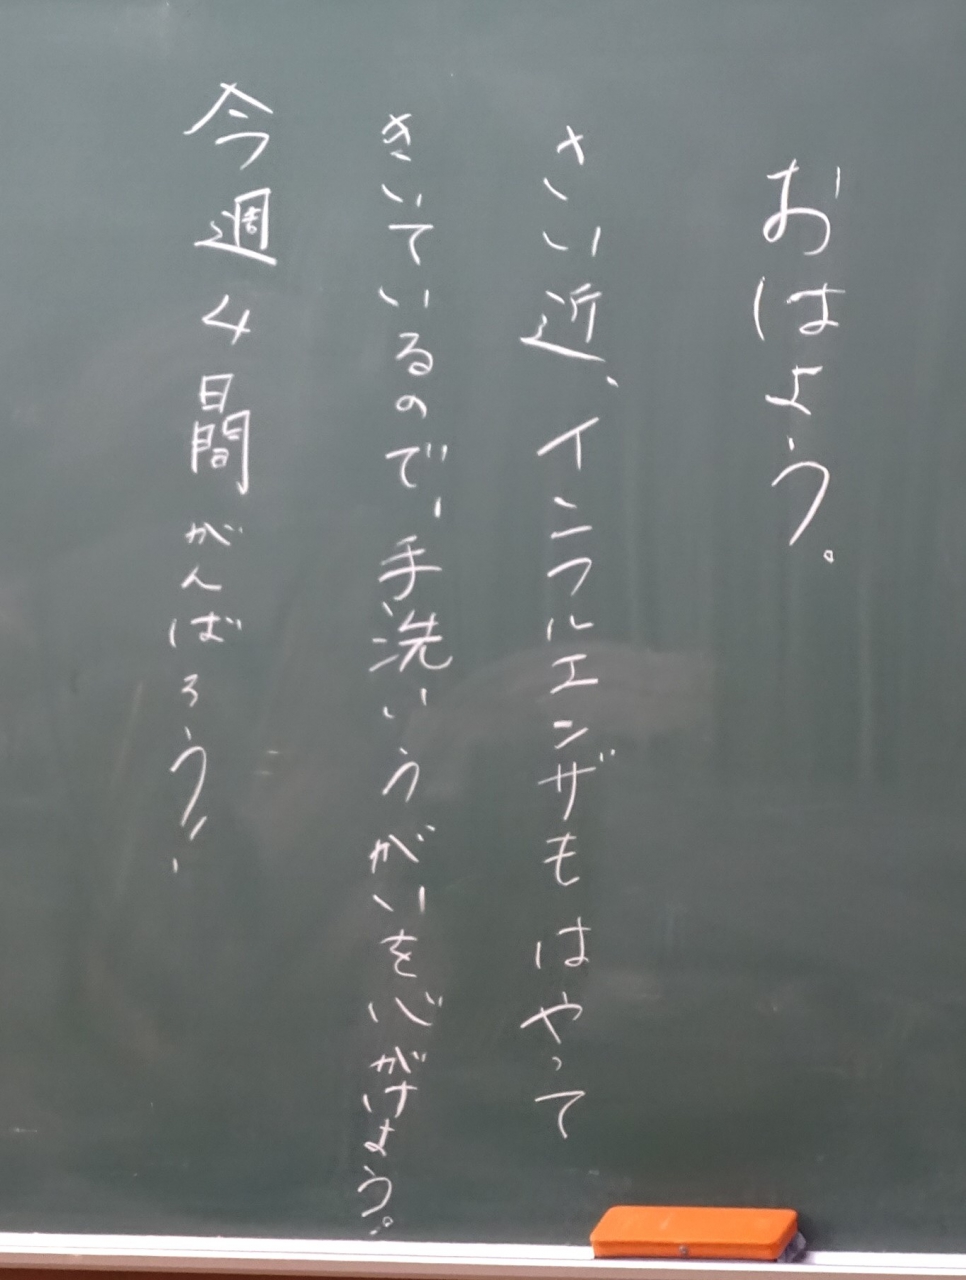 おはよう。
さい近、インフルエンザもはやって
きいているので、手洗いうがいを心がけよう。
今週4日間がんばろう!!